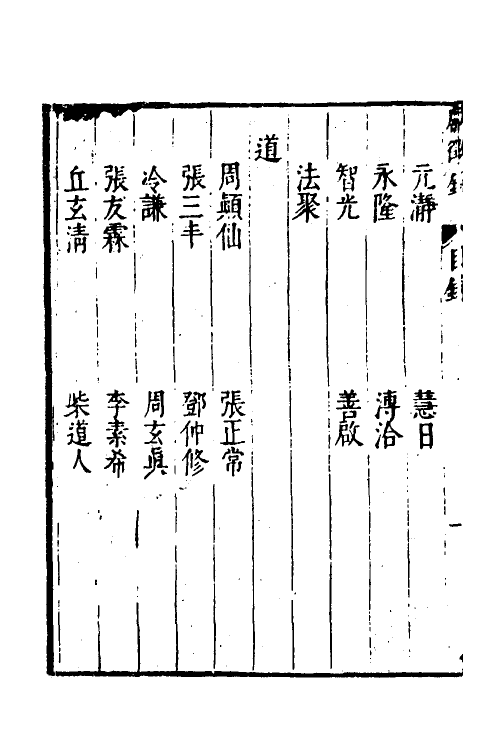 目錄
元瀞 慧日
永隆 溥洽
智光 善啟
法聚
道
周顛仙 張正常
張三丰 鄧仲修
冷謙 周玄眞
張友霖 李素希
丘玄清 柴道人